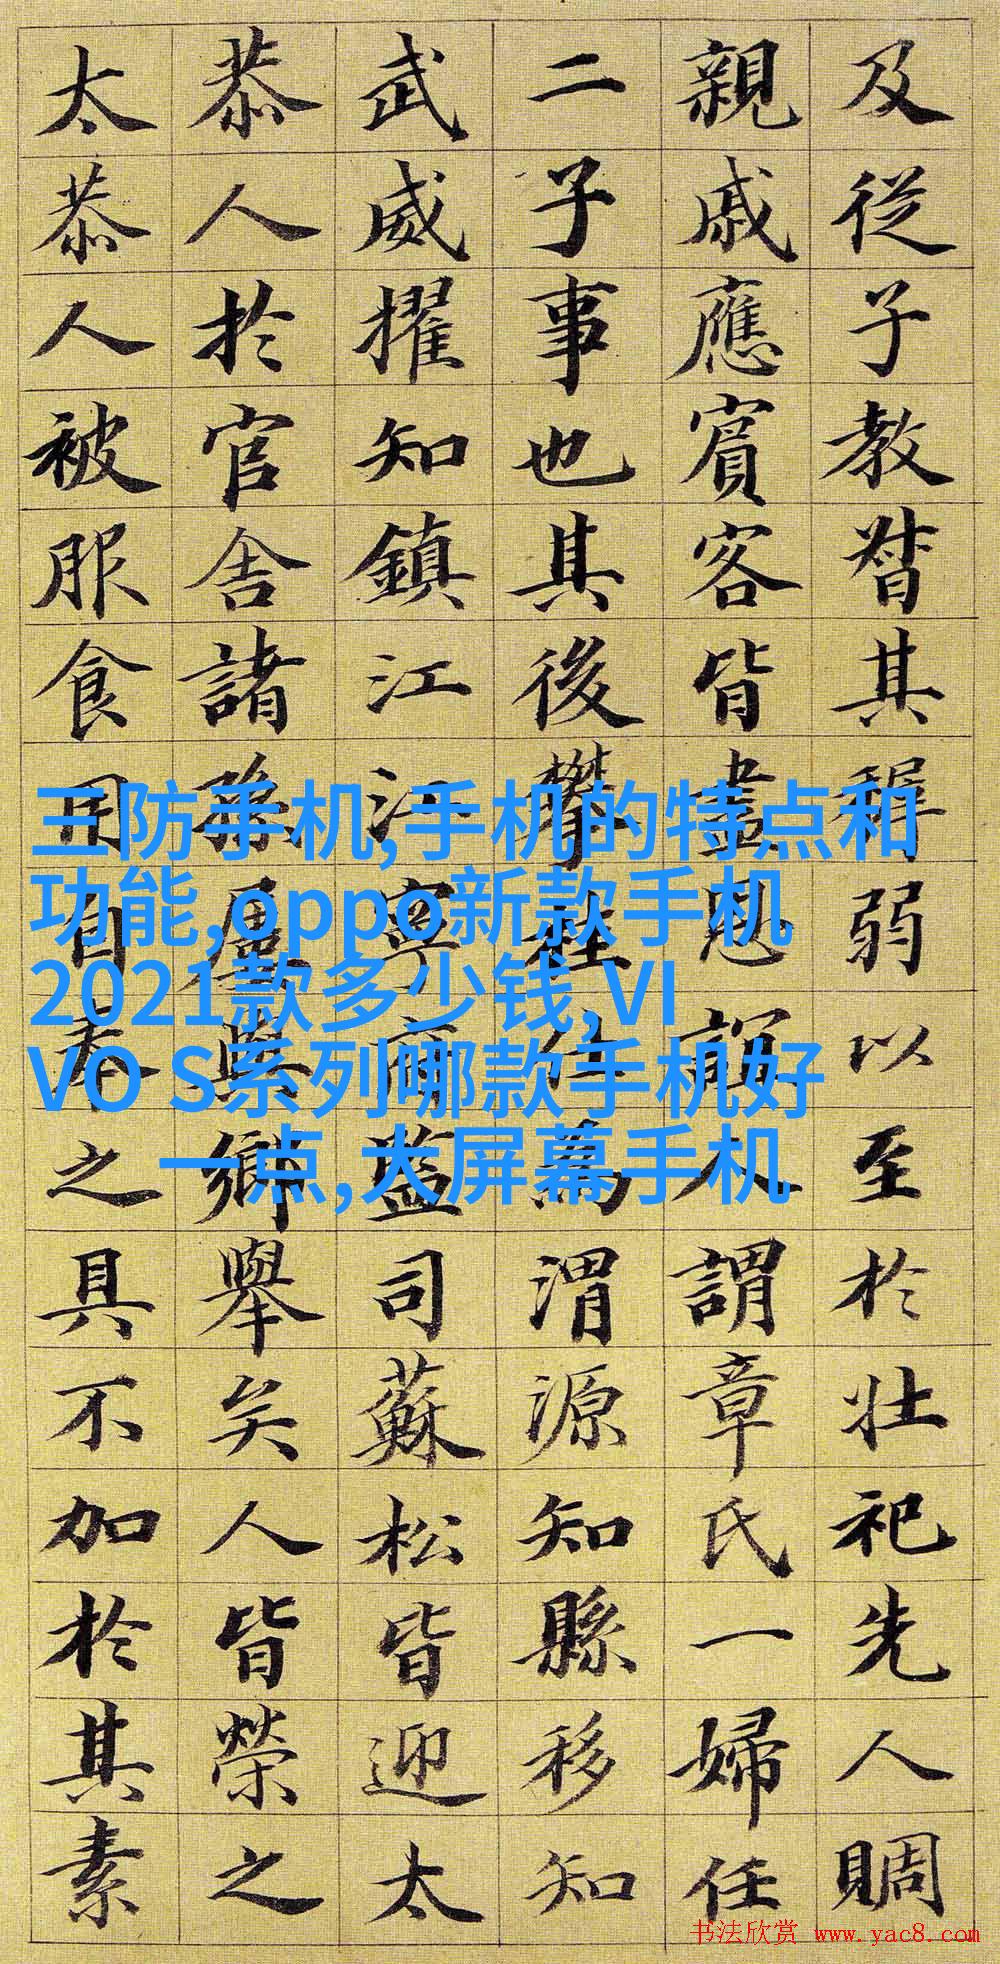 及從子教督其稺弱以至於壯祀先人賙
親戚應賓客皆盡恩誼人謂章氏一婦任
二子事也其後攀桂仕為渭源知縣移知
武威擢知鎮江江寧府蓋司蘇松皆迎太
恭人於官舍諸孫屢與鄉舉矣人皆榮之
太恭人被服食用自奉之具不加於其素
三防手机,手机的特点和
功能,oppo新款手机
2021款多少钱,VI
VO S系列哪款手机好
一点,大屏幕手机
书法欣赏 www.yac8.com